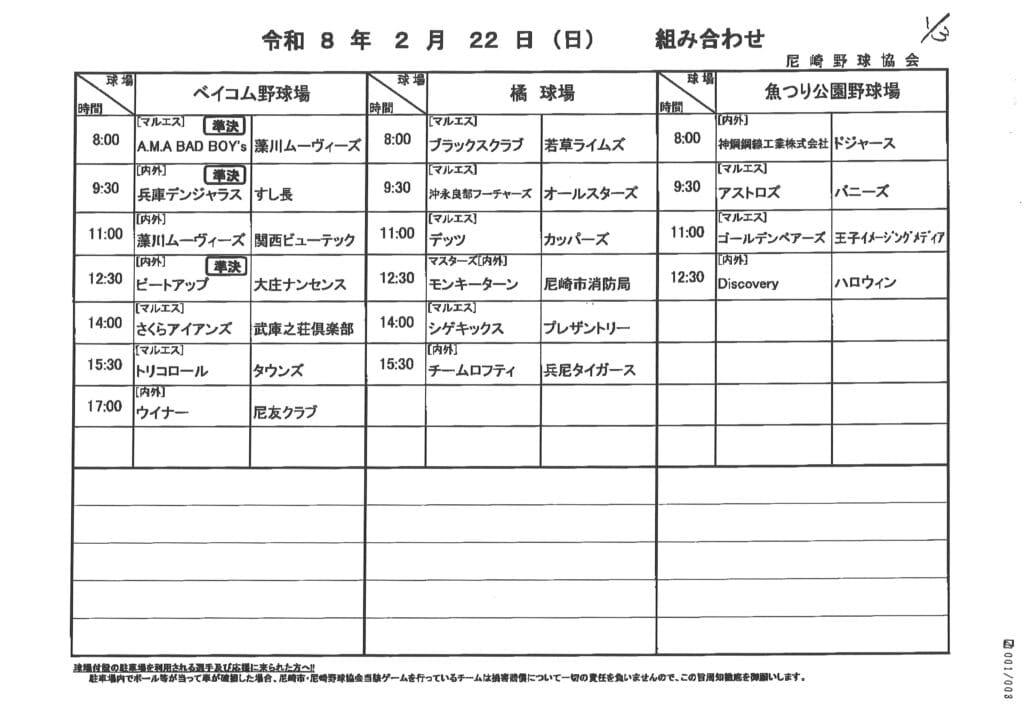 1/3
令和 8 年 2 月 22 日 (日) 組み合わせ
尼崎野球協会
球場 時間 ベイコム野球場
8:00 [マルエス] 準決
A.M.A BAD BOY's 藻川ムーヴィーズ
9:30 [内外] 準決
兵庫デンジャラス すし長
11:00 [内外]
藻川ムーヴィーズ 関西ビューテック
12:30 [内外] 準決
ビートアップ 大庄ナンセンス
14:00 [マルエス]
さくらアイアンズ 武庫之荘倶楽部
15:30 [マルエス]
トリコロール タウンズ
17:00 [内外]
ウイナー 尼友クラブ
球場 時間 橘 球場
8:00 [マルエス]
ブラックスクラブ 若草ライムズ
9:30 [マルエス]
沖永良部フーチャーズ オールスターズ
11:00 [マルエス]
デッツ カッパーズ
12:30 マスターズ[内外]
モンキーターン 尼崎市消防局
14:00 [マルエス]
シゲキックス プレザントリー
15:30 [内外]
チームロフティ 兵尼タイガース
球場 時間 魚つり公園野球場
8:00 [内外]
神鋼鋼線工業株式会社 ドジャース
9:30 [マルエス]
アストロズ バニーズ
11:00 [マルエス]
ゴールデンベアーズ 王子イメージングメディア
12:30 [内外]
Discovery ハロウィン
球場付設の駐車場を利用される選手及び応援に来られた方へ!!
駐車場内でボール等が当って車が破損した場合、尼崎市・尼崎野球協会当験ゲームを行っているチームは損害賠償について一切の責任を負いませんので、この旨周知徹底を御願いします。
001/003